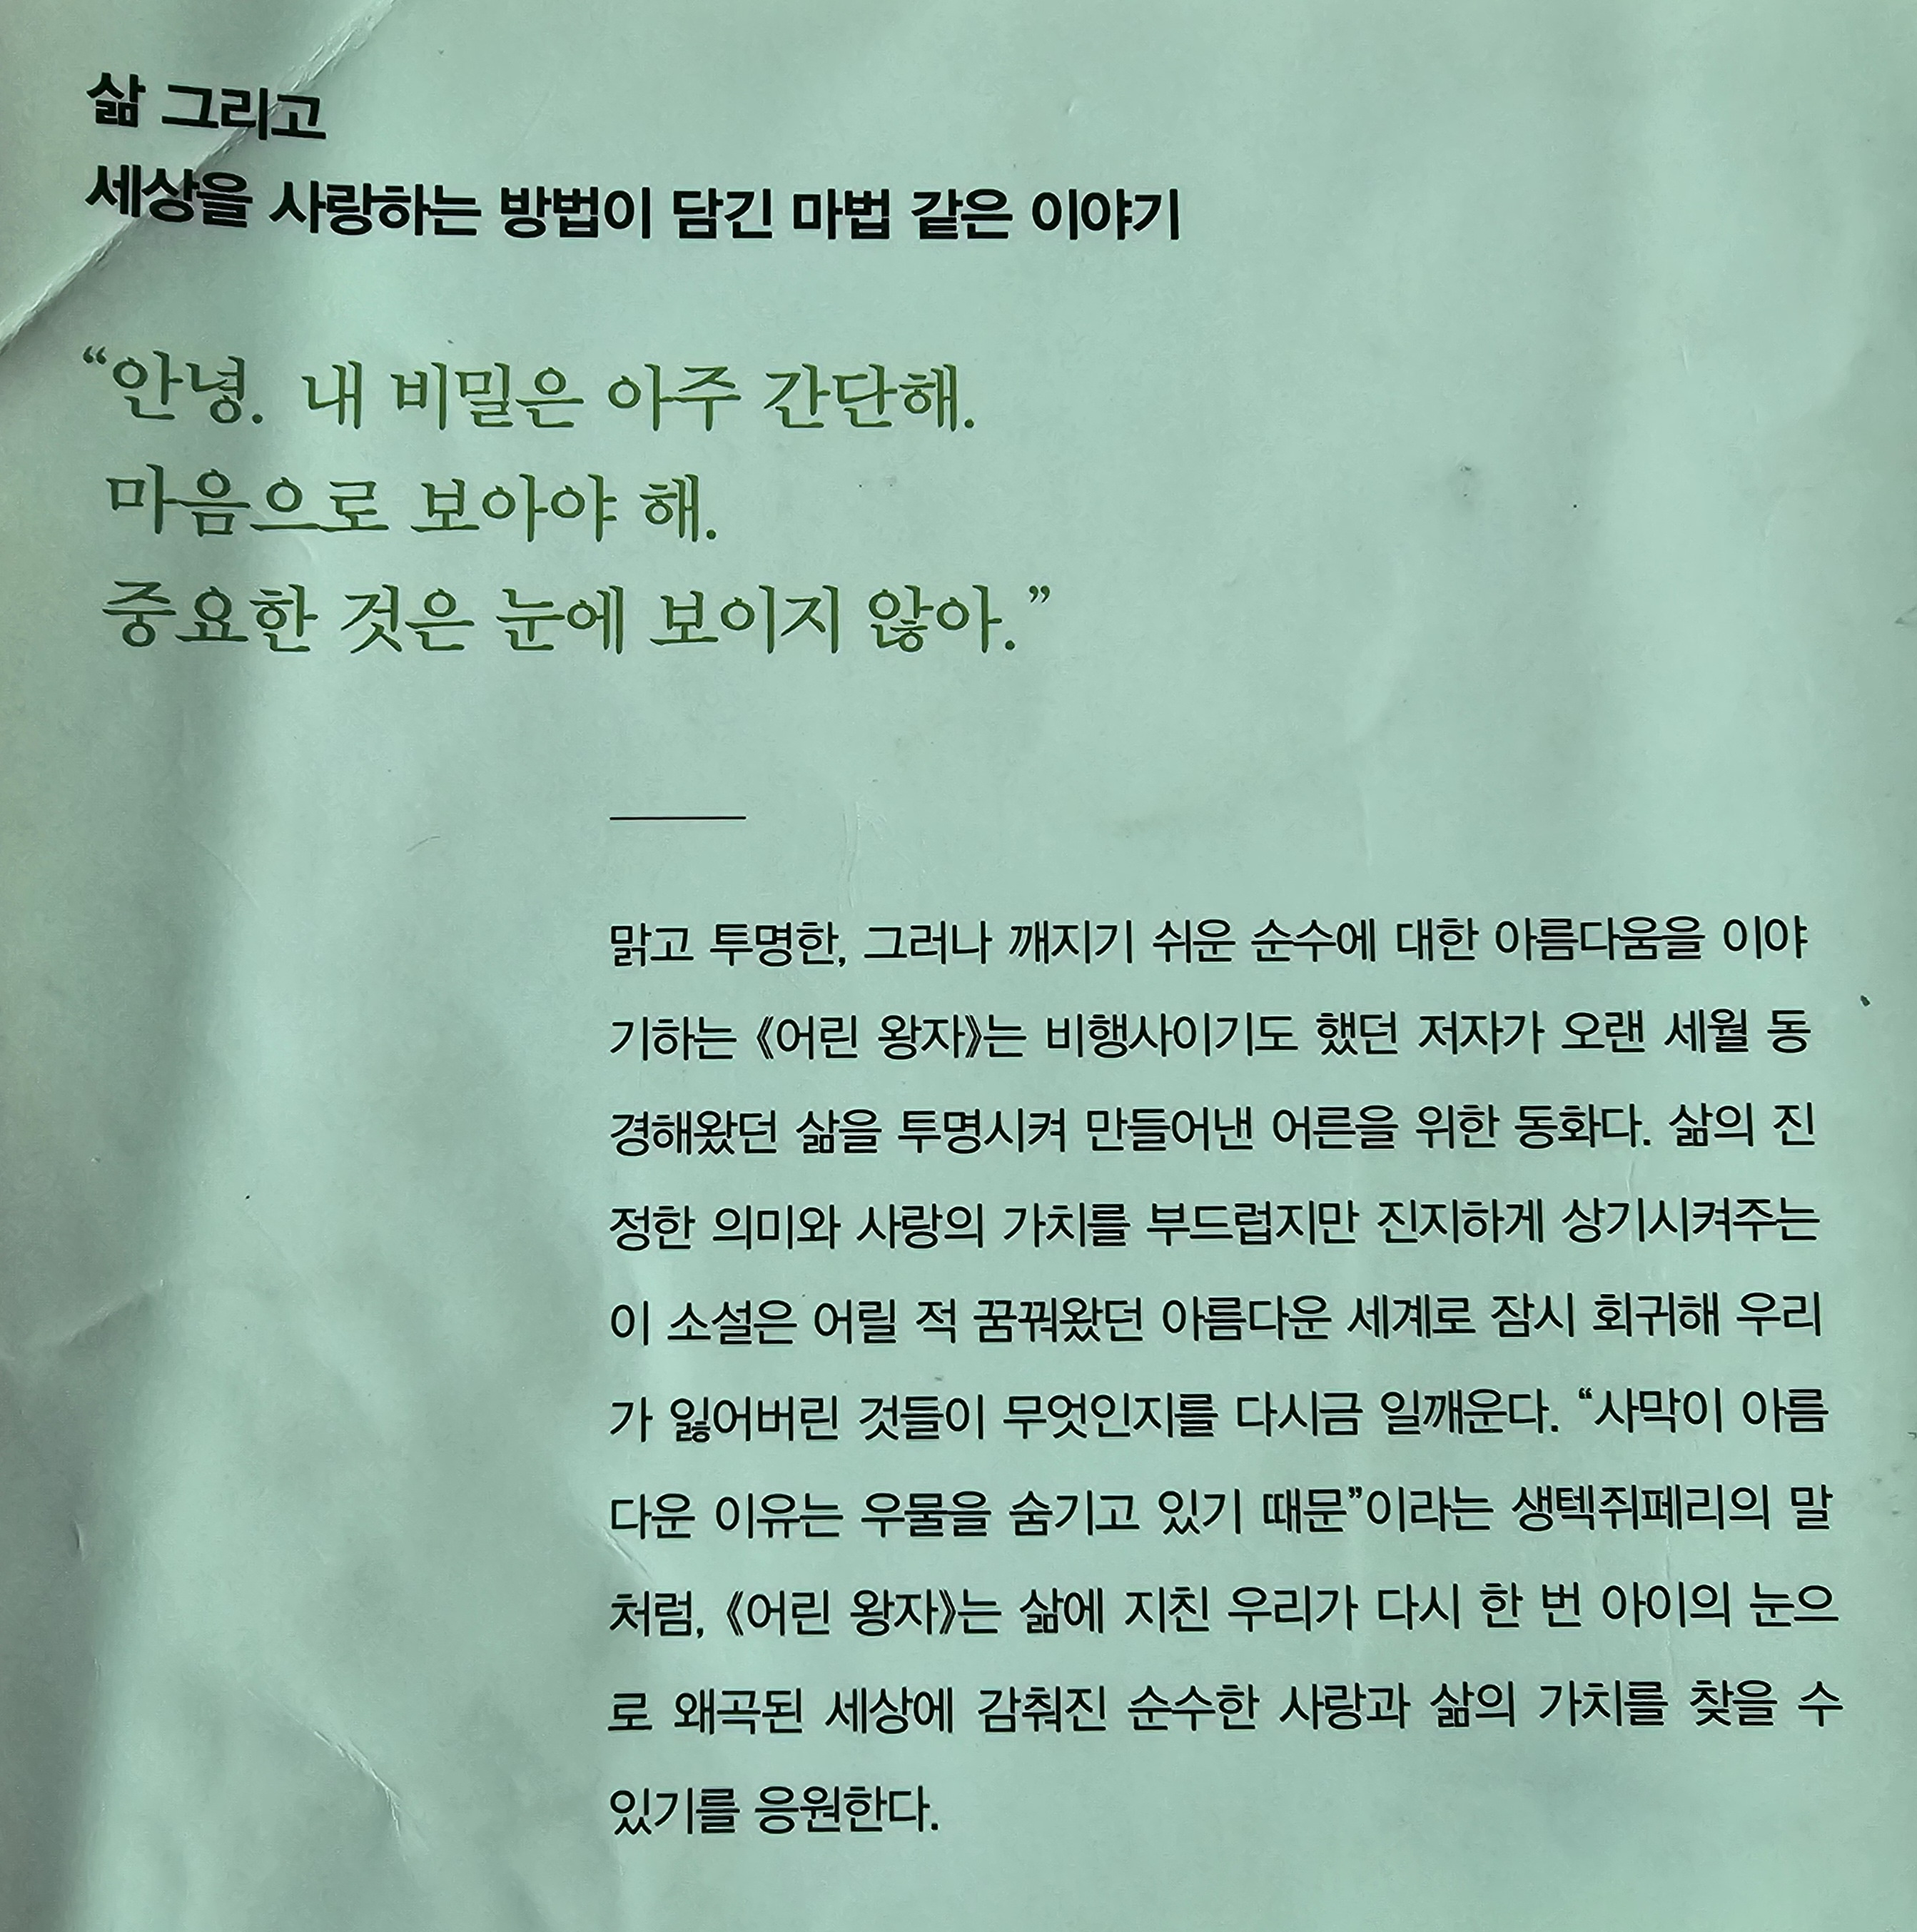 삶 그리고
세상을 사랑하는 방법이 담긴 마법 같은 이야기
“안녕. 내 비밀은 아주 간단해.
마음으로 보아야 해.
중요한 것은 눈에 보이지 않아.”
맑고 투명한, 그러나 깨지기 쉬운 순수에 대한 아름다움을 이야
기하는 《어린 왕자》는 비행사이기도 했던 저자가 오랜 세월 동
경해왔던 삶을 투명시켜 만들어낸 어른을 위한 동화다. 삶의 진
정한 의미와 사랑의 가치를 부드럽지만 진지하게 상기시켜주는
이 소설은 어릴 적 꿈꿔왔던 아름다운 세계로 잠시 회귀해 우리
가 잃어버린 것들이 무엇인지를 다시금 일깨운다. “사막이 아름
다운 이유는 우물을 숨기고 있기 때문”이라는 생텍쥐페리의 말
처럼, 《어린 왕자》는 삶에 지친 우리가 다시 한 번 아이의 눈으
로 왜곡된 세상에 감춰진 순수한 사랑과 삶의 가치를 찾을 수
있기를 응원한다.